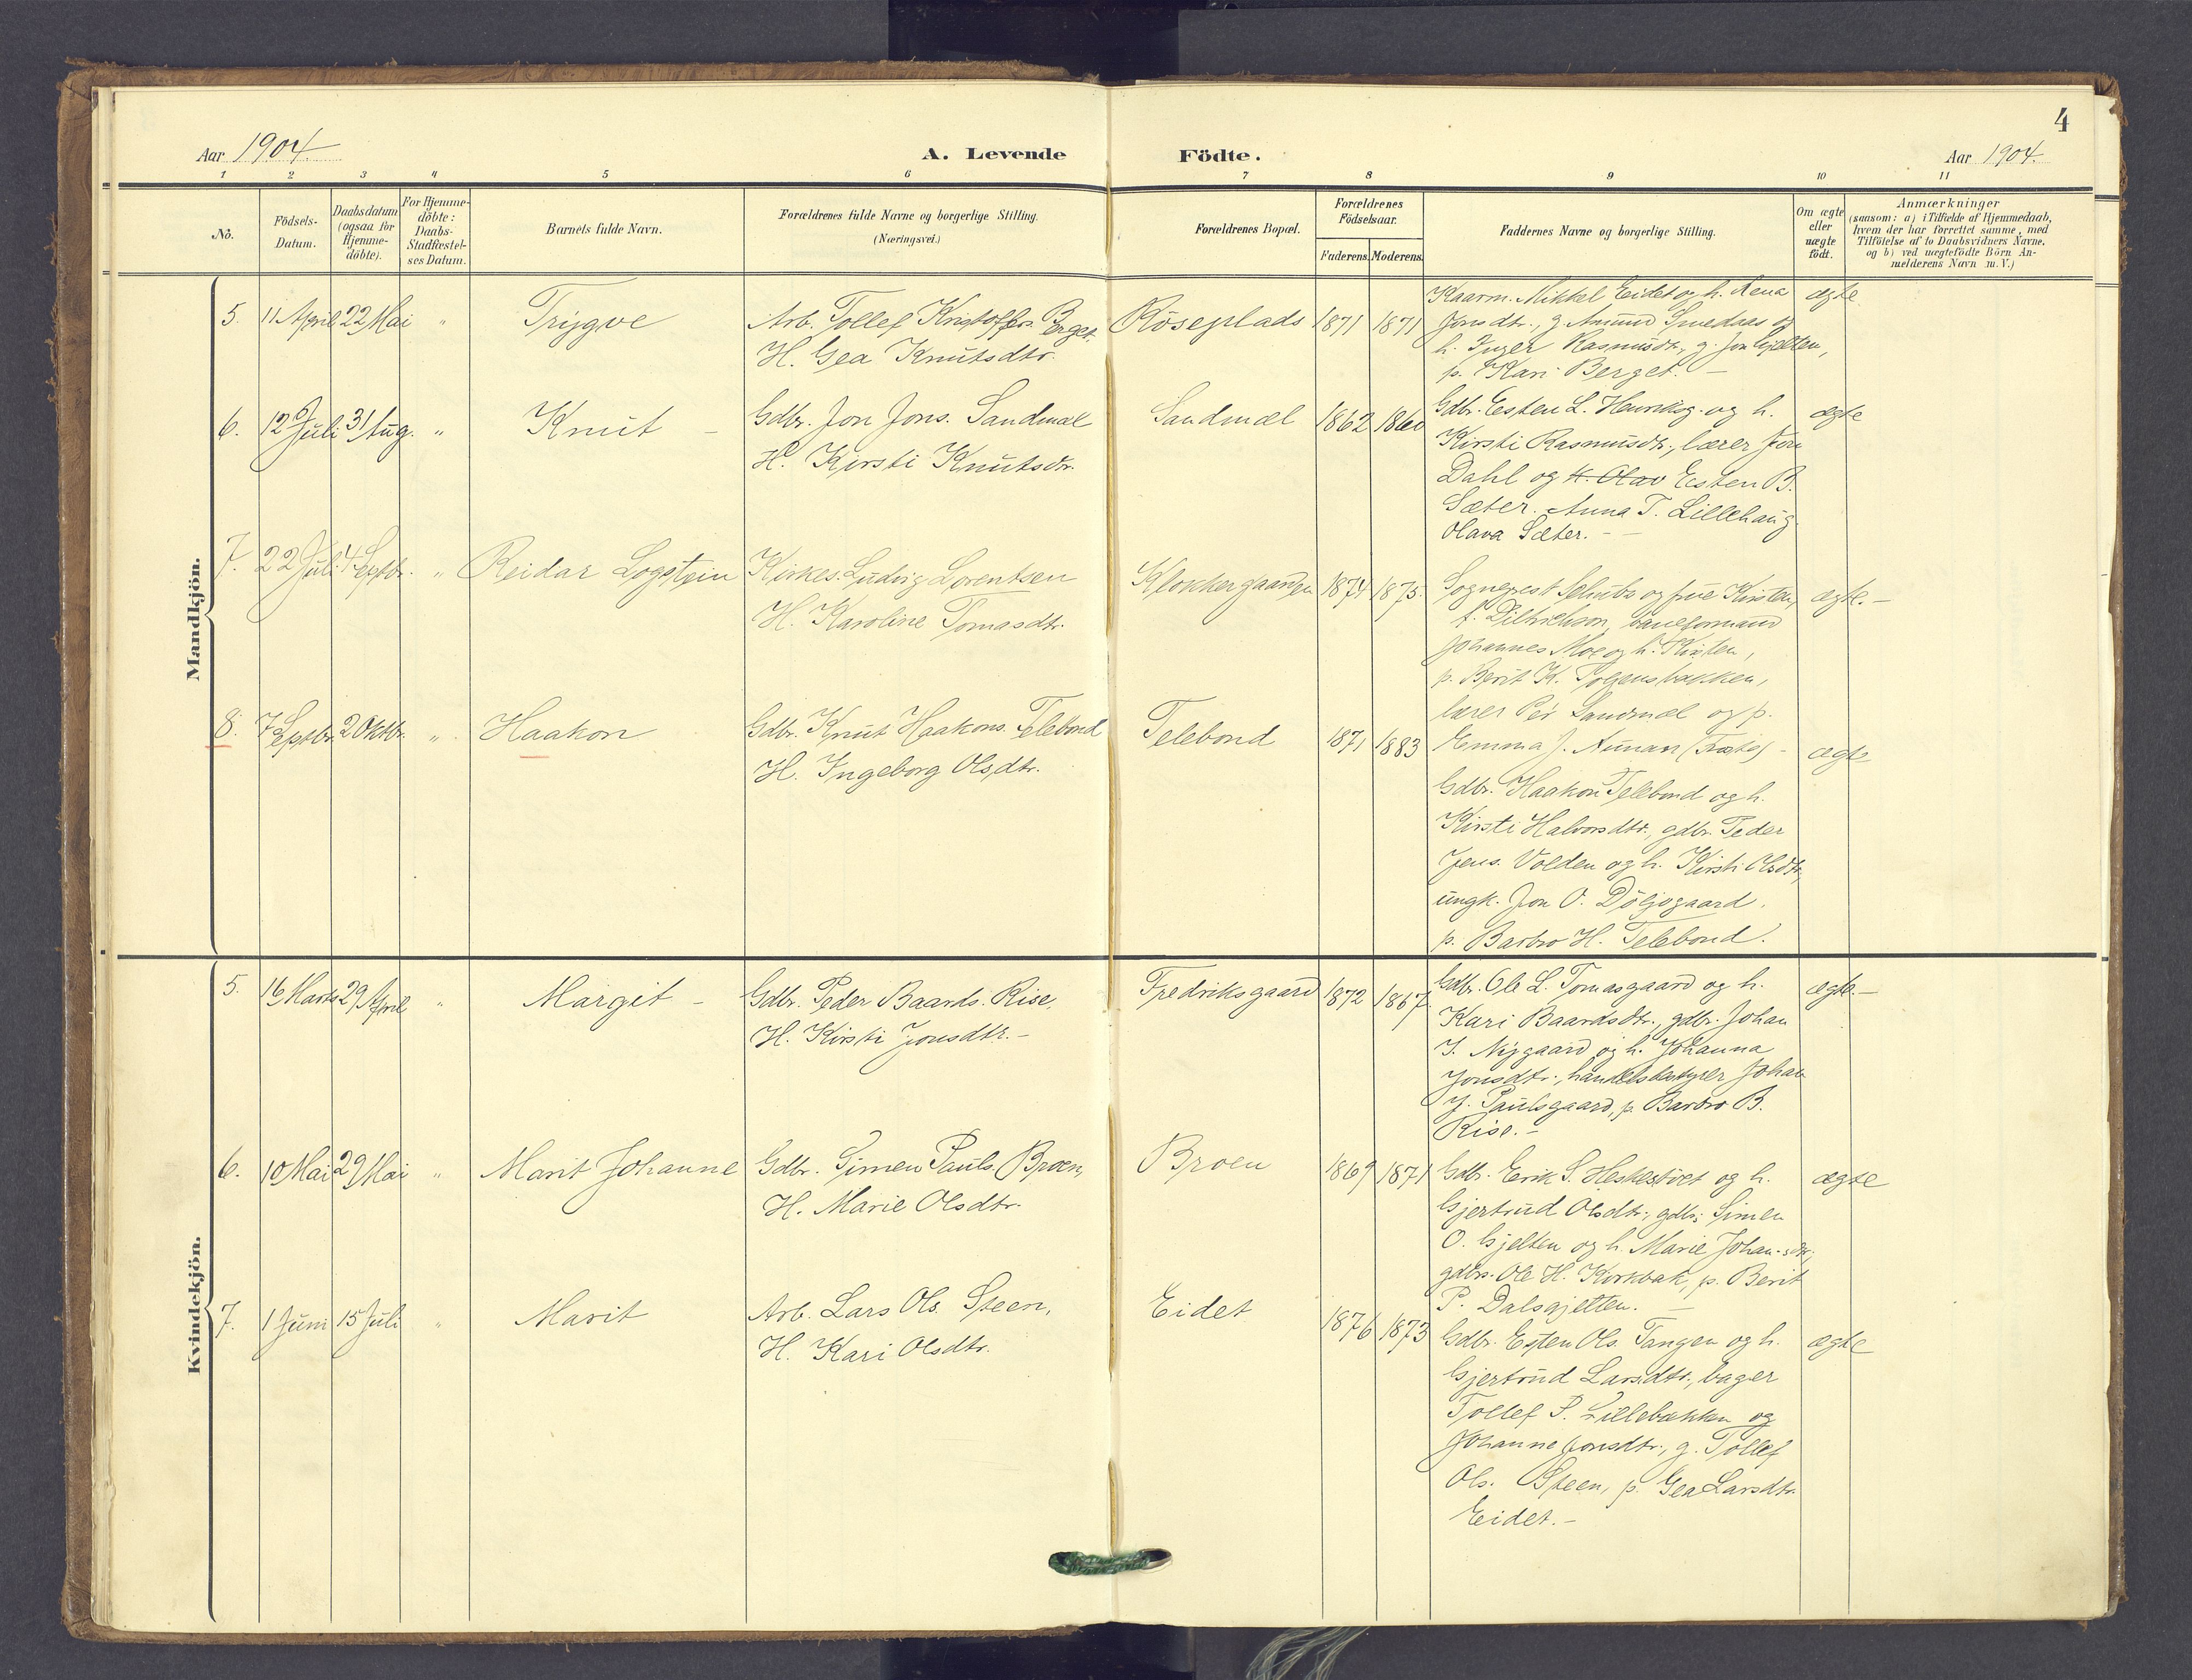 4
Aar 1904.
A. Levende Födte.
Aar 1904.
1 2 3 4 5 6 7 8 9 10 11
No.
Födsels-Datum.
Daabsdatum (ogsaa for Hjemme-döbte).
For Hjemme-döbte: Daabs-Stadfæstel-ses Datum.
Barnets fulde Navn.
Forældrenes fulde Navne og borgerlige Stilling.
(Næringsvei.)
Forældrenes Bopæl.
Forældrenes Födselsaar.
Faderens. Moderens.
Faddernes Navne og borgerlige Stilling.
Om ægte eller uægte födt.
Anmærkninger
(saasom: a) i Tilfælde af Hjemmedaab,
hvem der har forrettet samme, med
Tilföielse af to Daabsvidners Navne,
og b) ved uægtefödte Börn An-
melderens Navn m. V.)
Mandkjön.
5. 11 April 22 Mai " Trygve
Arb. Tollef Kristoffers. Berget.
H. Gea Knutsdtr.
Röseplads 1871 1871
Kaarm. Mikkel Eidet og h. Rena
Jonsdtr., g. Amund Smedaas og
h. Inger Rasmusdtr., g. Jon Gjelten,
p. Kari Berget. -
ægte
6. 12 Juli 31 Aug. " Knut -
Gdbr. Jon Jons. Sandmæl
H. Kirsti Knutsdtr.
Sandmæl 1862 1860
Gdbr. Esten L. Henriksg. og h.
Kirsti Rasmusdtr., lærer Jon
Dahl og H. Olav Esten B.
Sæter. Anna T. Lillehaug
Olava Sæter. -
ægte
7. 22 Juli 4 Septbr. " Reidar Logstein
Kirkes. Ludvig Lorentsen
H. Karoline Tomasdtr.
Klokkergaarden 1874 1875.
Sogneprest Schübs og frue Kirsten,
f. Ditrichson, baneformand
Johannes Moe og h. Kirsten,
p. Berit K. Tolgensbakken,
lærer Per Sandmæl og p.
Emma J. Aunan (Træte) -
ægte. -
8. 7 Septbr. 2 Oktbr. " Haakon
Gdbr. Knut Haakons. Telebond
H. Ingeborg Olsdtr.
Telebond 1871 1883
Gdbr. Haakon Telebond og h.
Kirsti Halvorsdtr., gdbr. Peder
Jens. Volden og h. Kirsti Olsdtr,
ungk. Jon O. Döljogaard.
p. Barbro H. Telebond.
ægte
Kvindekjön.
5. 16 Marts 29 April " Margit -
Gdbr. Peder Baards. Rise,
H. Kirsti Jonsdtr. -
Fredriksgaard 1872 1867.
Gdbr. Ole L. Tomasgaard og h.
Kari Baardsdtr., gdbr. Johan
J. Nygaard og h. Johanna
Jonsdtr., handelsbestyrer Johan
J. Paulsgaard, p. Barbro B.
Rise. -
ægte. -
6. 10 Mai 29 Mai " Marit Johanne
Gdbr. Simen Pauls. Broen,
H. Marie Olsdtr.
Broen 1869 1871
Gdbr. Erik S. Heskestöet og h.
Gjertrud Olsdtr., gdbr. Simen
O. Gjelten og h. Marie Johansdtr.,
gdbrs. Ole H. Korkbak, p. Berit
P. Dalsgjelten. -
ægte
7. 1 Juni 15 Juli " Marit
Arb. Lars Ols. Steen,
H. Kari Olsdtr.
Eidet 1876 1873
Gdbr. Esten Ols. Tangen og h.
Gjertrud Larsdtr., bager
Tollef P. Lillebækken og
Johanne Jonsdtr., g. Tollef
Ols. Steen, p. Gea Larsdtr.
Eidet. -
ægte